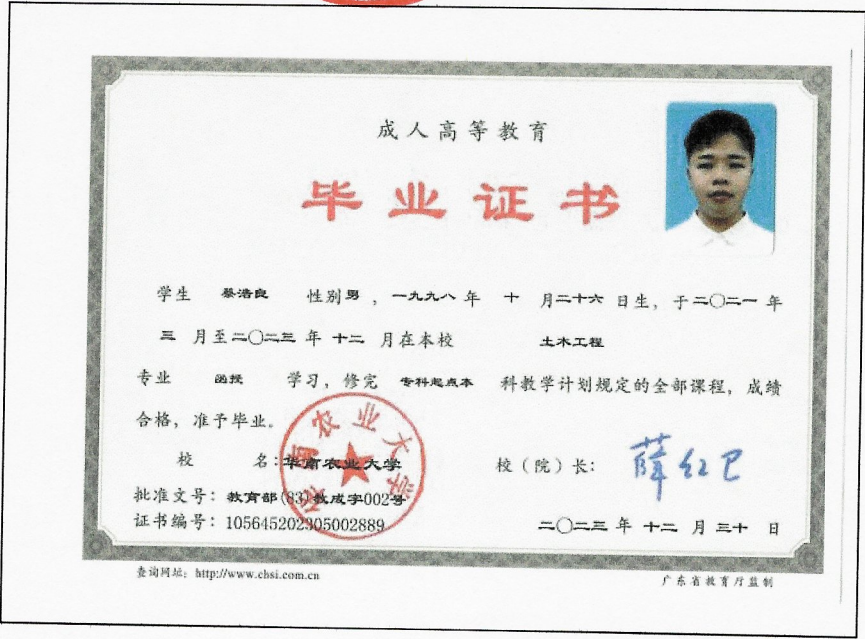 成人高等教育
毕业证书
学生 蔡浩良 性别男，一九九八年 十 月二十六日生，于二〇二一年
三 月至二〇二三年 十二 月在本校 土木工程
专业 函授 学习，修完 专科起点本 科教学计划规定的全部课程，成绩
合格，准予毕业。
校 名：华南农业大学
校（院）长： 薛红卫
批准文号：教育部(83)教成字002号
证书编号：105645202305002889
二〇二三年 十二 月三十 日
华南农业大学
查询网址：http://www.chsi.com.cn
广东省教育厅监制